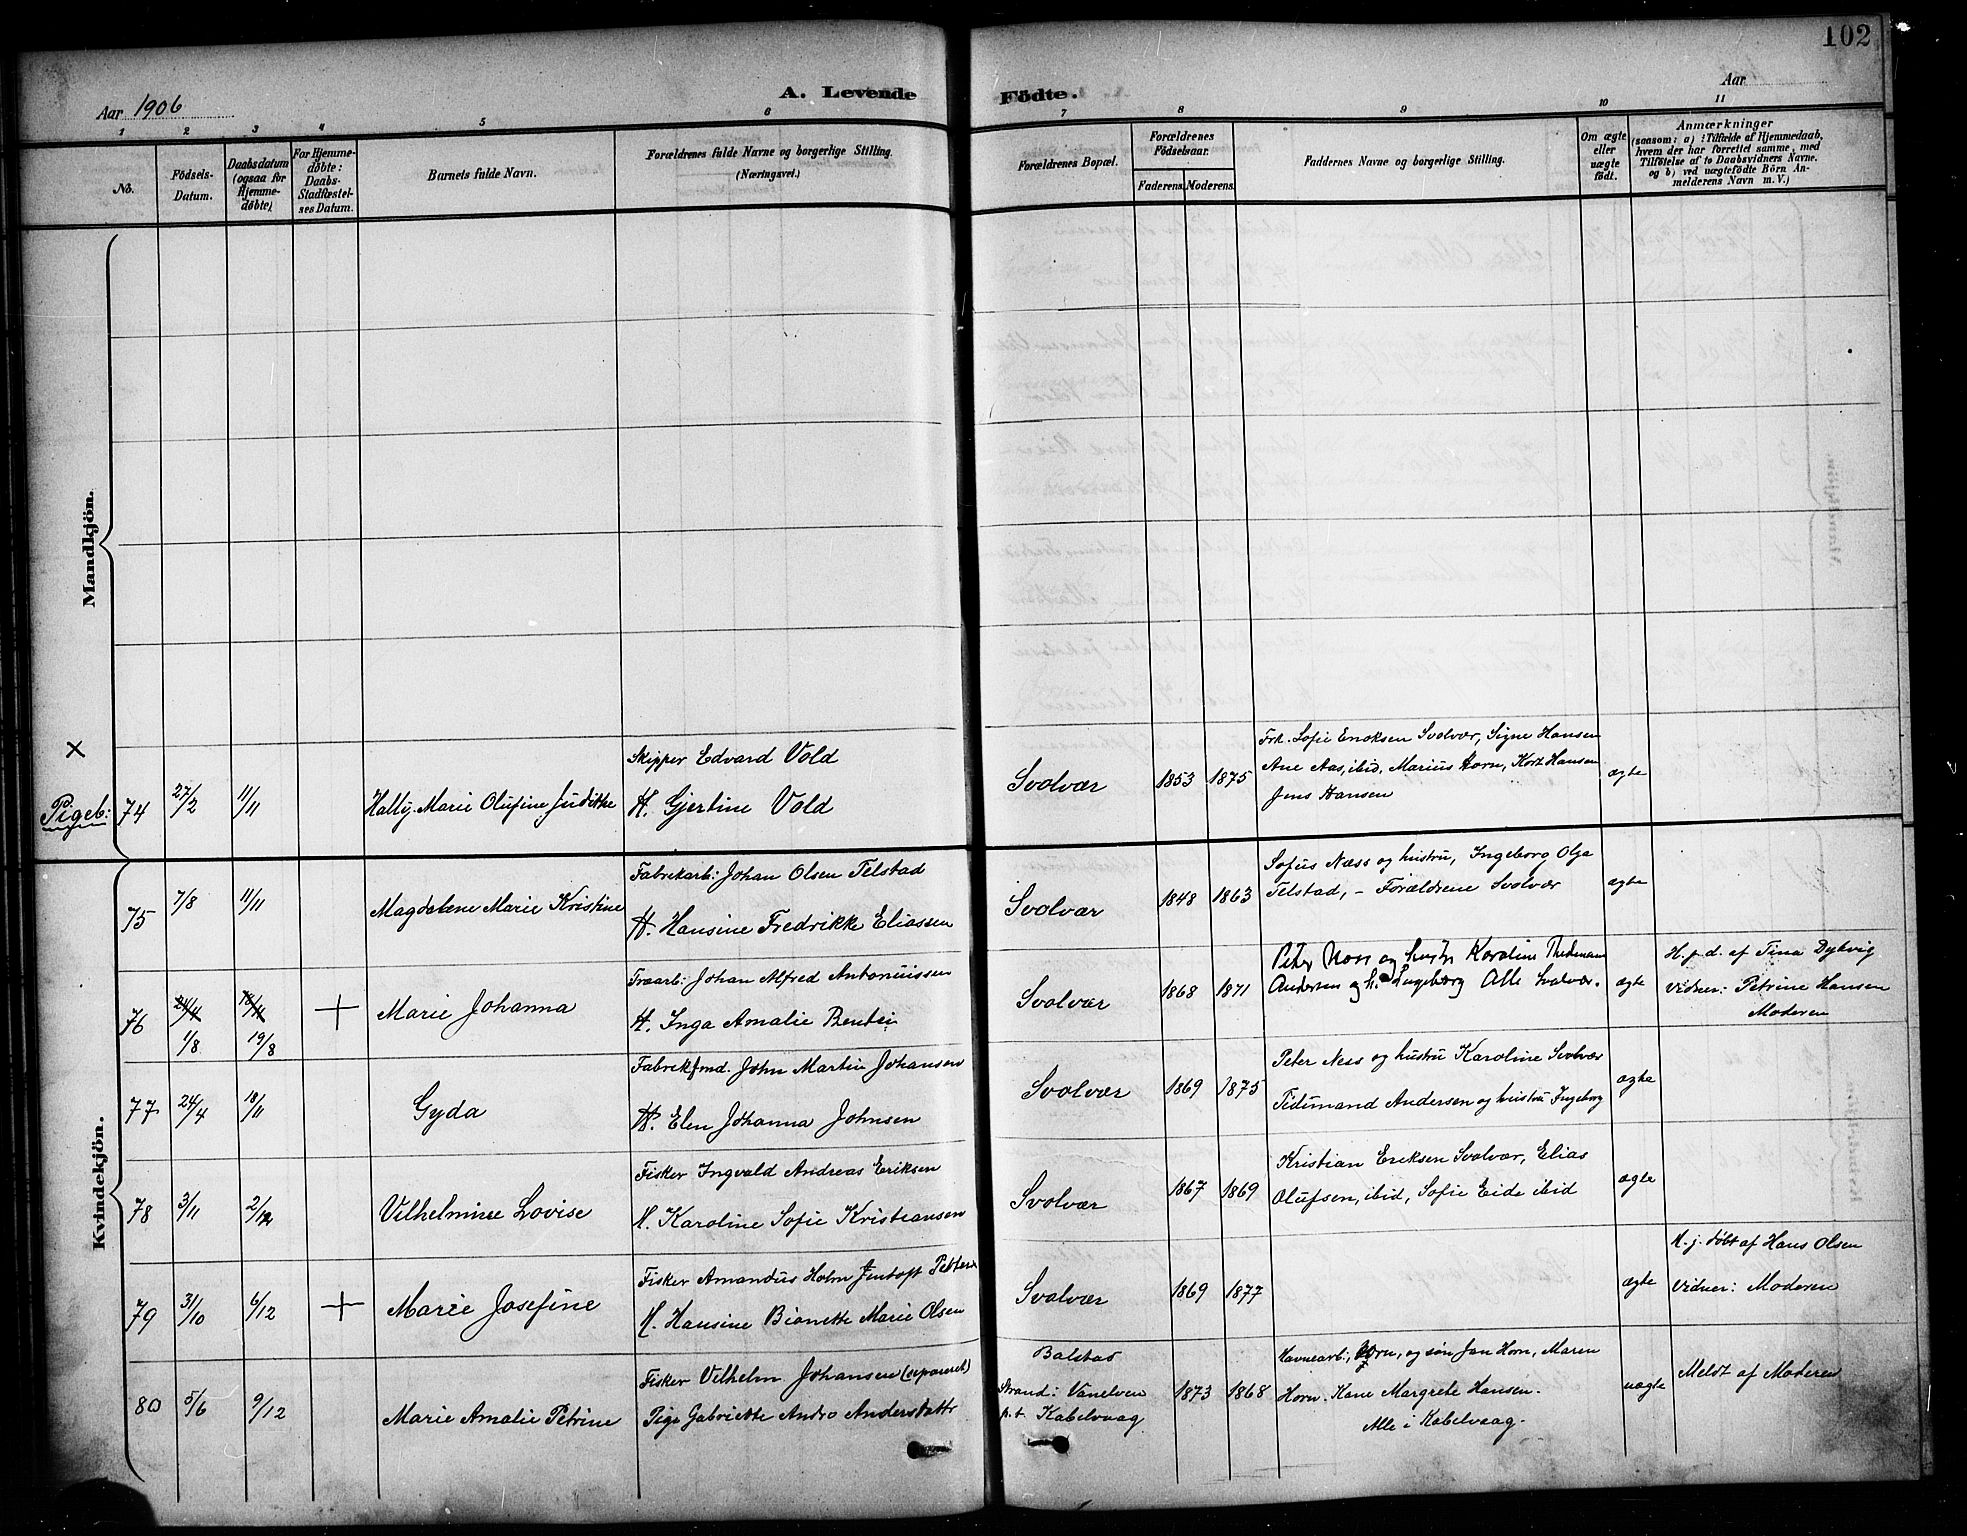 102
Aar 1906
A. Levende Födte.
Aar
1 2 3 4 5 6 7 8 9 10 11
No.
Födsels-
Datum.
Daabsdatum
(ogsaa for
Hjemme-
døbte)
For Hjemme-
døbte:
Daabs-
Stadfæstel-
ses Datum.
Barnets fulde Navn.
Forældrenes fulde Navne og borgerlige Stilling.
(Næringsvei.)
Forældrenes Bopæl.
Forældrenes
Födselsaar.
Faderens. Moderens.
Faddernes Navne og borgerlige Stilling.
Om ægte
eller
uægte
født.
Anmærkninger
(saasom: a) Tilfælde af Hjemmedaab,
hvem der har forrettet samme, med
Tilføielse af to Daabsvidners Navne.
og b) ved uægtefødte Börn An-
melderens Navn m. V.)
Mandkjön.
×
Pigeb: 74 27/2 11/11 Hally Marie Olufine Judithe
Skipper Edvard Vold
H. Gjertine Vold
Svolvær 1853 1875
Frk. Sofie Enoksen Svolvær, Signe Hansen
Ane Aas, ibid, Marius Horn, Kort Hansen
Jens Hansen
ægte
Kvindekjön.
75 7/8 11/11 Magdalene Marie Kristine
Fabrikarb: Johan Olsen Telstad
H. Hansine Fredrikke Eliassen
Svolvær 1848 1863
Sofus Næss og hustru, Ingeborg Olga
Telstad, - Forældrene Svolvær
ægte
76 24/4 18/11 + Marie Johanna
1/8 19/8
Træarb: Johan Alfred Antoniussen
H. Inga Amalie
Svolvær 1868 1871
Peter Næss og hustr Karoline
Andersen og h. Ingeborg Alle Svolvær.
ægte
H. j. d. af Tina Dybvig
Vidner: Petrine Hansen
Moderen
77 24/4 18/11 Gyda
Fabrikfmd. John Martin Johansen
H. Elen Johanna Johnsen
Svolvær 1869 1875
Peter Ness og hustru Karoline Svolvær
Tidemand Andersen og hustru Ingeborg
ægte
78 3/11 2/12 Vilhelmine Lovise
Fisker Ingvald Andreas Eriksen
H. Karoline Sofie Kristiansen
Svolvær 1867 1869
Kristian Eriksen Svolvær, Elias
Olufsen, ibid, Sofie Eide ibid
ægte
79 31/10 6/12 + Marie Josefine
Fisker Amandus Holm Jentoft Petters
H. Hansine Bianette Marie Olsen
Svolvær 1869 1877
ægte
H. j. døbt af Hans Olsen
Vidner: Moderen
80 5/6 9/12 Marie Amalie Petrine
Fisker Vilhelm Johansen (separeret)
Pige Gabriette Andro Andersdattr
Balstad
Strand: Vanelven
p.t Kabelvaag
1873 1868
Havnearb: Horn, og søn Jan Horn, Maren
Horn. Kone Margrete Hansen.
Alle i Kabelvaag.
uægte
Meldt af Moderen